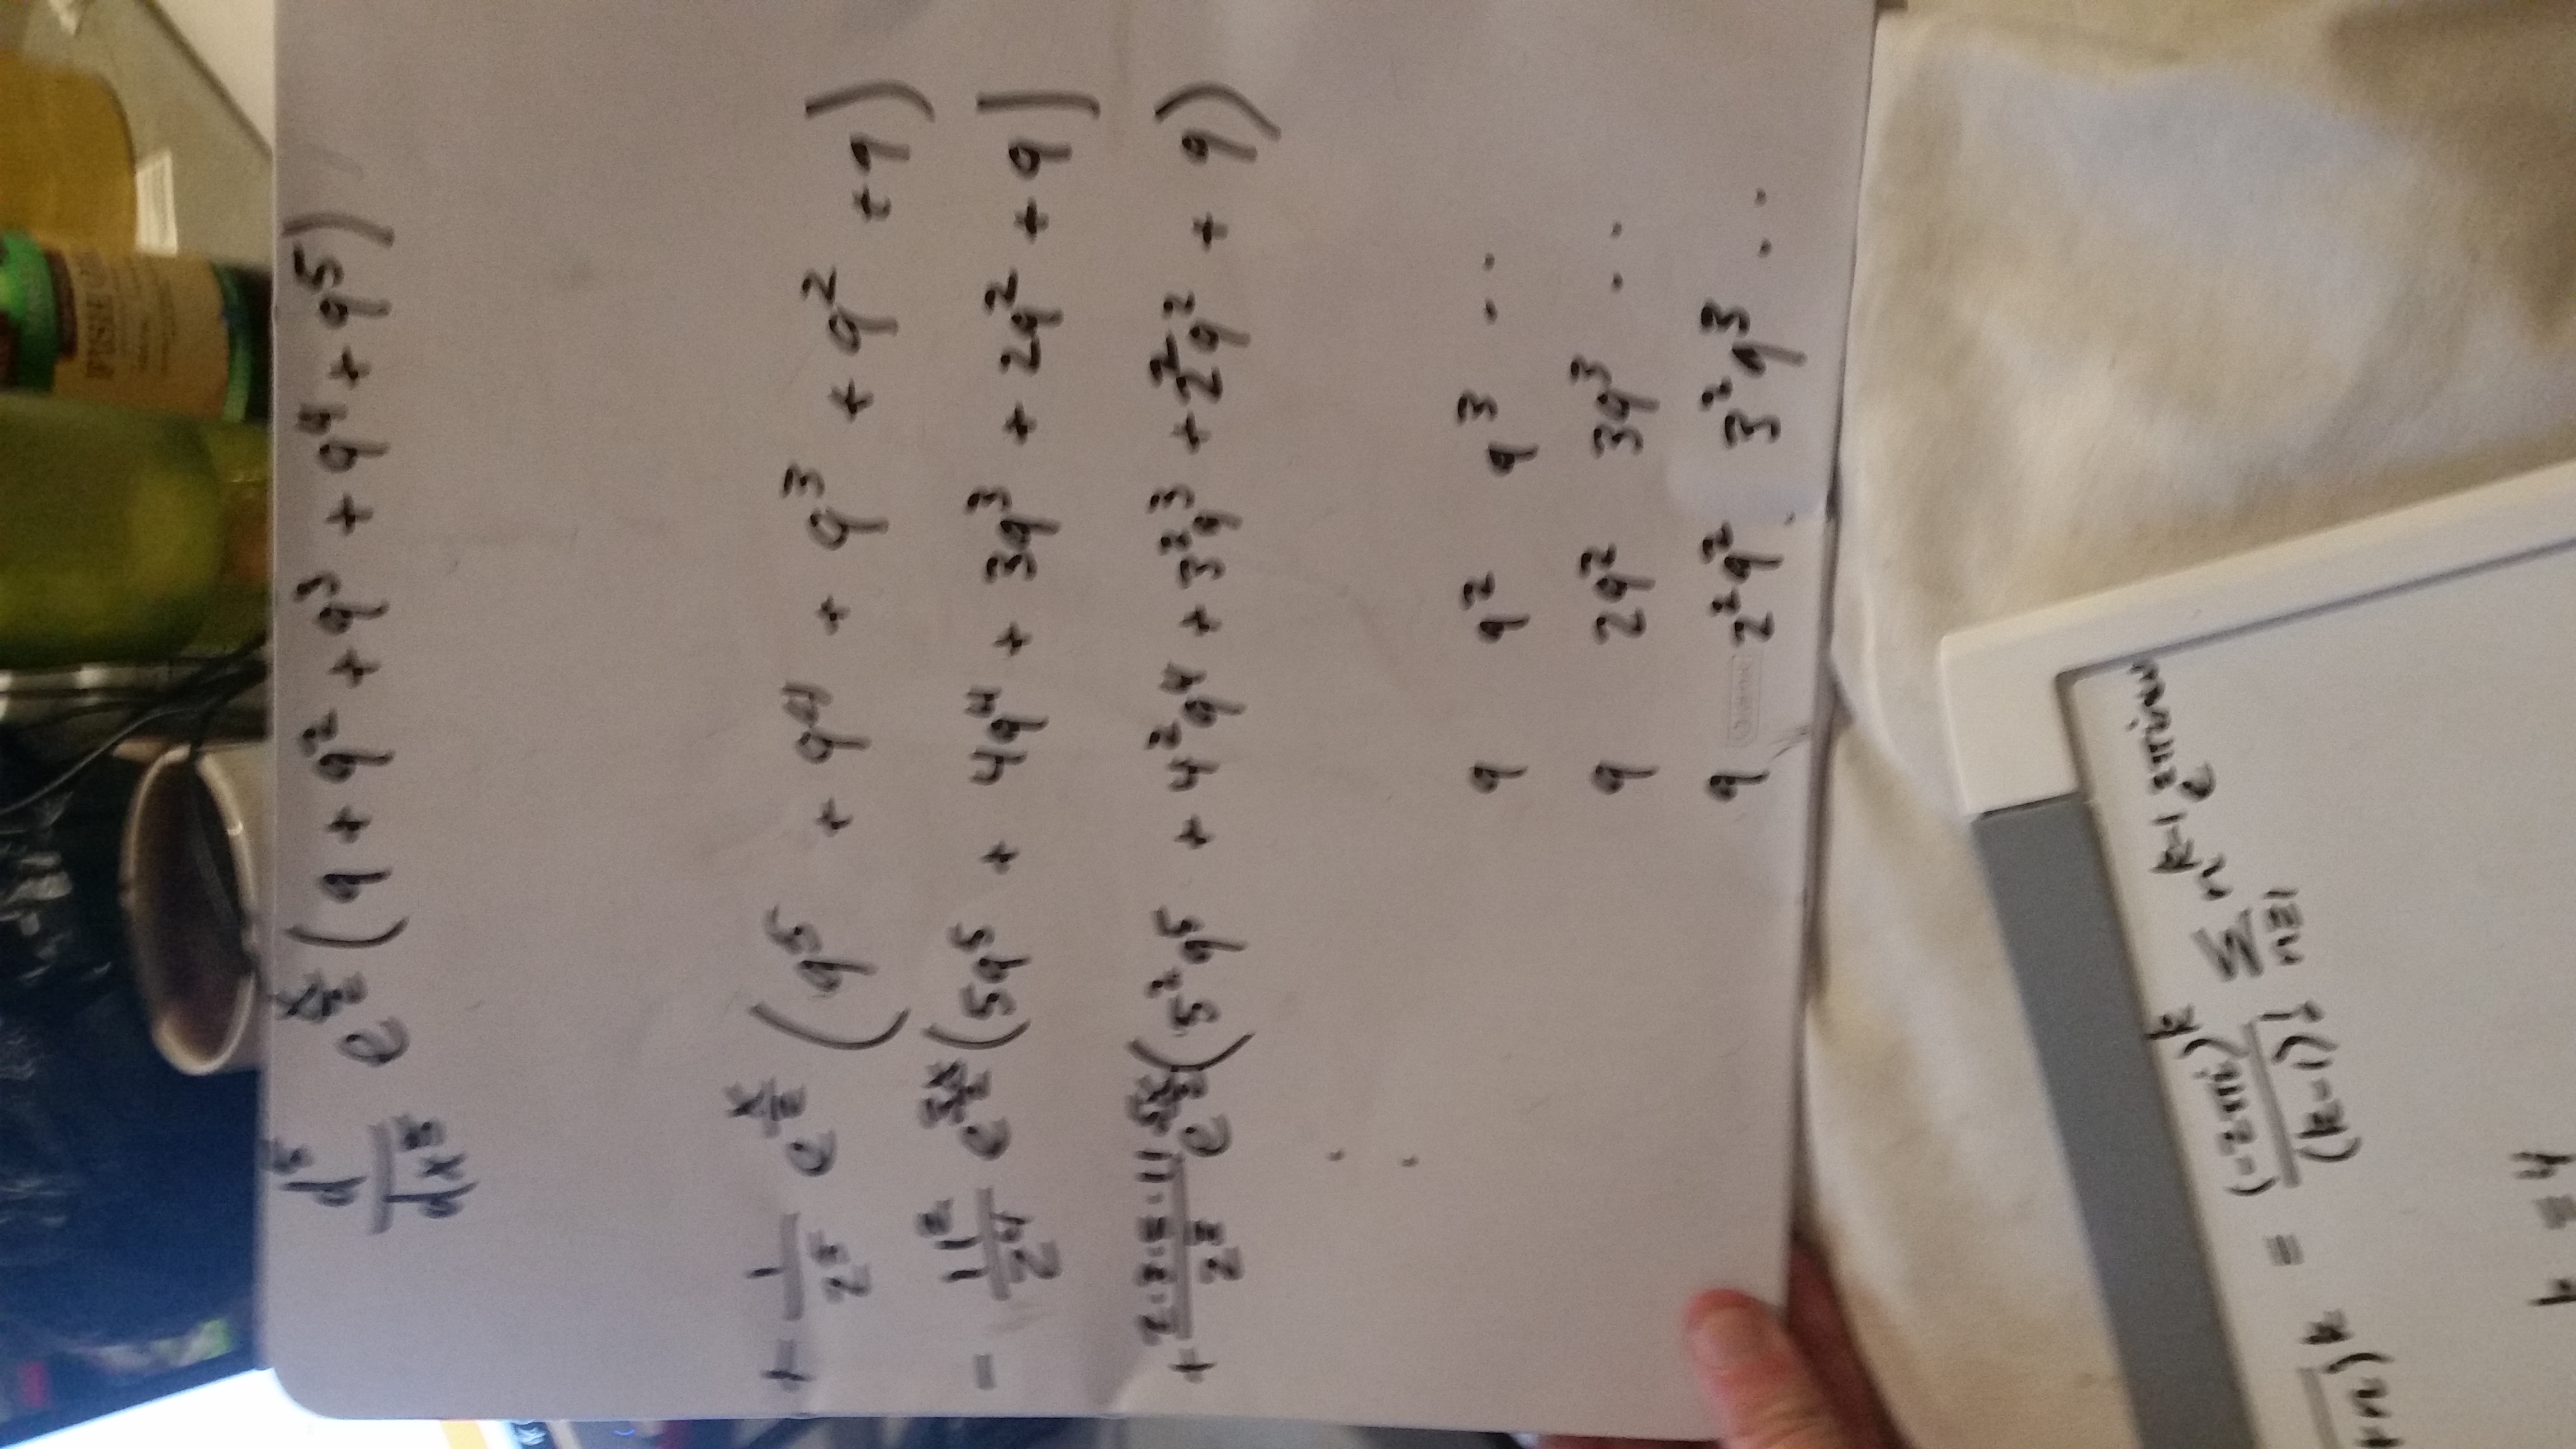 d⁵/dx⁵ e^(x/2) (q + q² + q³ + q⁴ + q⁵)
+ 1/2⁵ e^(x/2) (q⁵ + q⁴ + q³ + q² + q)
- 11²/2⁴ e^(3x/2) (5q⁵ + 4q⁴ + 3q³ + 2q² + q)
+ 2·3·5·11/2³ e^(5x/2) (5²q⁵ + 4²q⁴ + 3²q³ + 2²q² + q)
:
q q² q³ ..
q 2q² 3q³ ..
q 2²q² 3²q³ ..
+n)^k = (-2πi)^k/(k-1)! Σ_(n≥1) n^(k-1) e^(2πinw)
k = 4